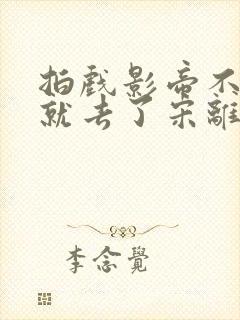 拍戏影帝不
就去了宋離
李念覺